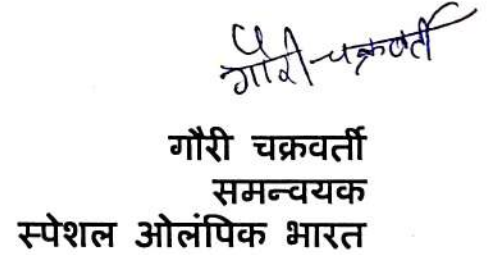 गौरी चक्रवर्ती
गौरी चक्रवर्ती
समन्वयक
स्पेशल ओलंपिक भारत